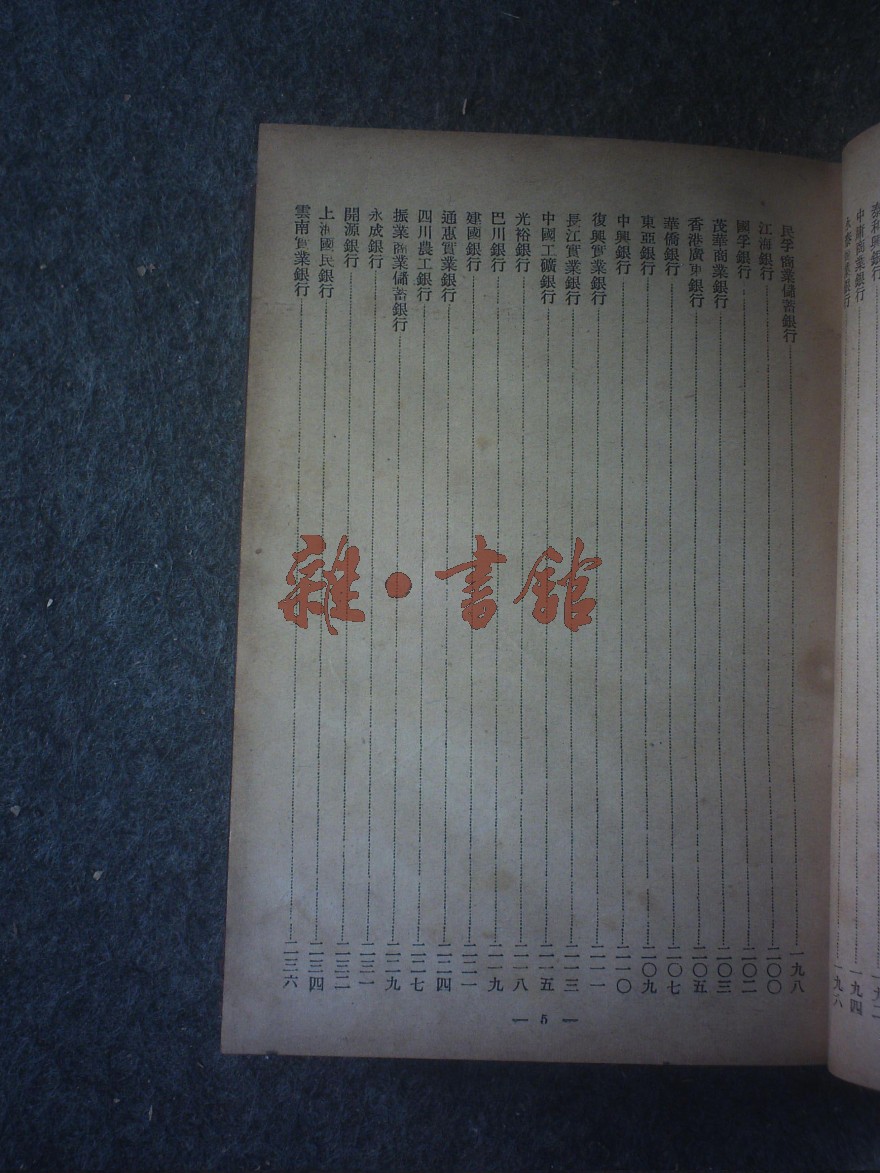 和興銀行
中庸商業銀行……一九四
業銀行……一九六
民孚商業儲蓄銀行……一九八
江海銀行……二〇〇
國孚銀行……二〇二
茂華商業銀行……二〇三
香港廣東銀行……二〇五
華僑銀行……二〇七
東亞銀行……二〇九
中興銀行……二一〇
復興實業銀行……二一一
長江實業銀行……二一三
中國工礦銀行……二一五
光裕銀行……二一八
巴川銀行……二一九
建國銀行……二二一
通惠實業銀行……二二四
四川農工銀行……二二七
振業商業儲蓄銀行……二二九
永成銀行……二三一
開源銀行……二三二
上海國民銀行……二三四
雲南實業銀行……二三六
— 5 —
雜·書館